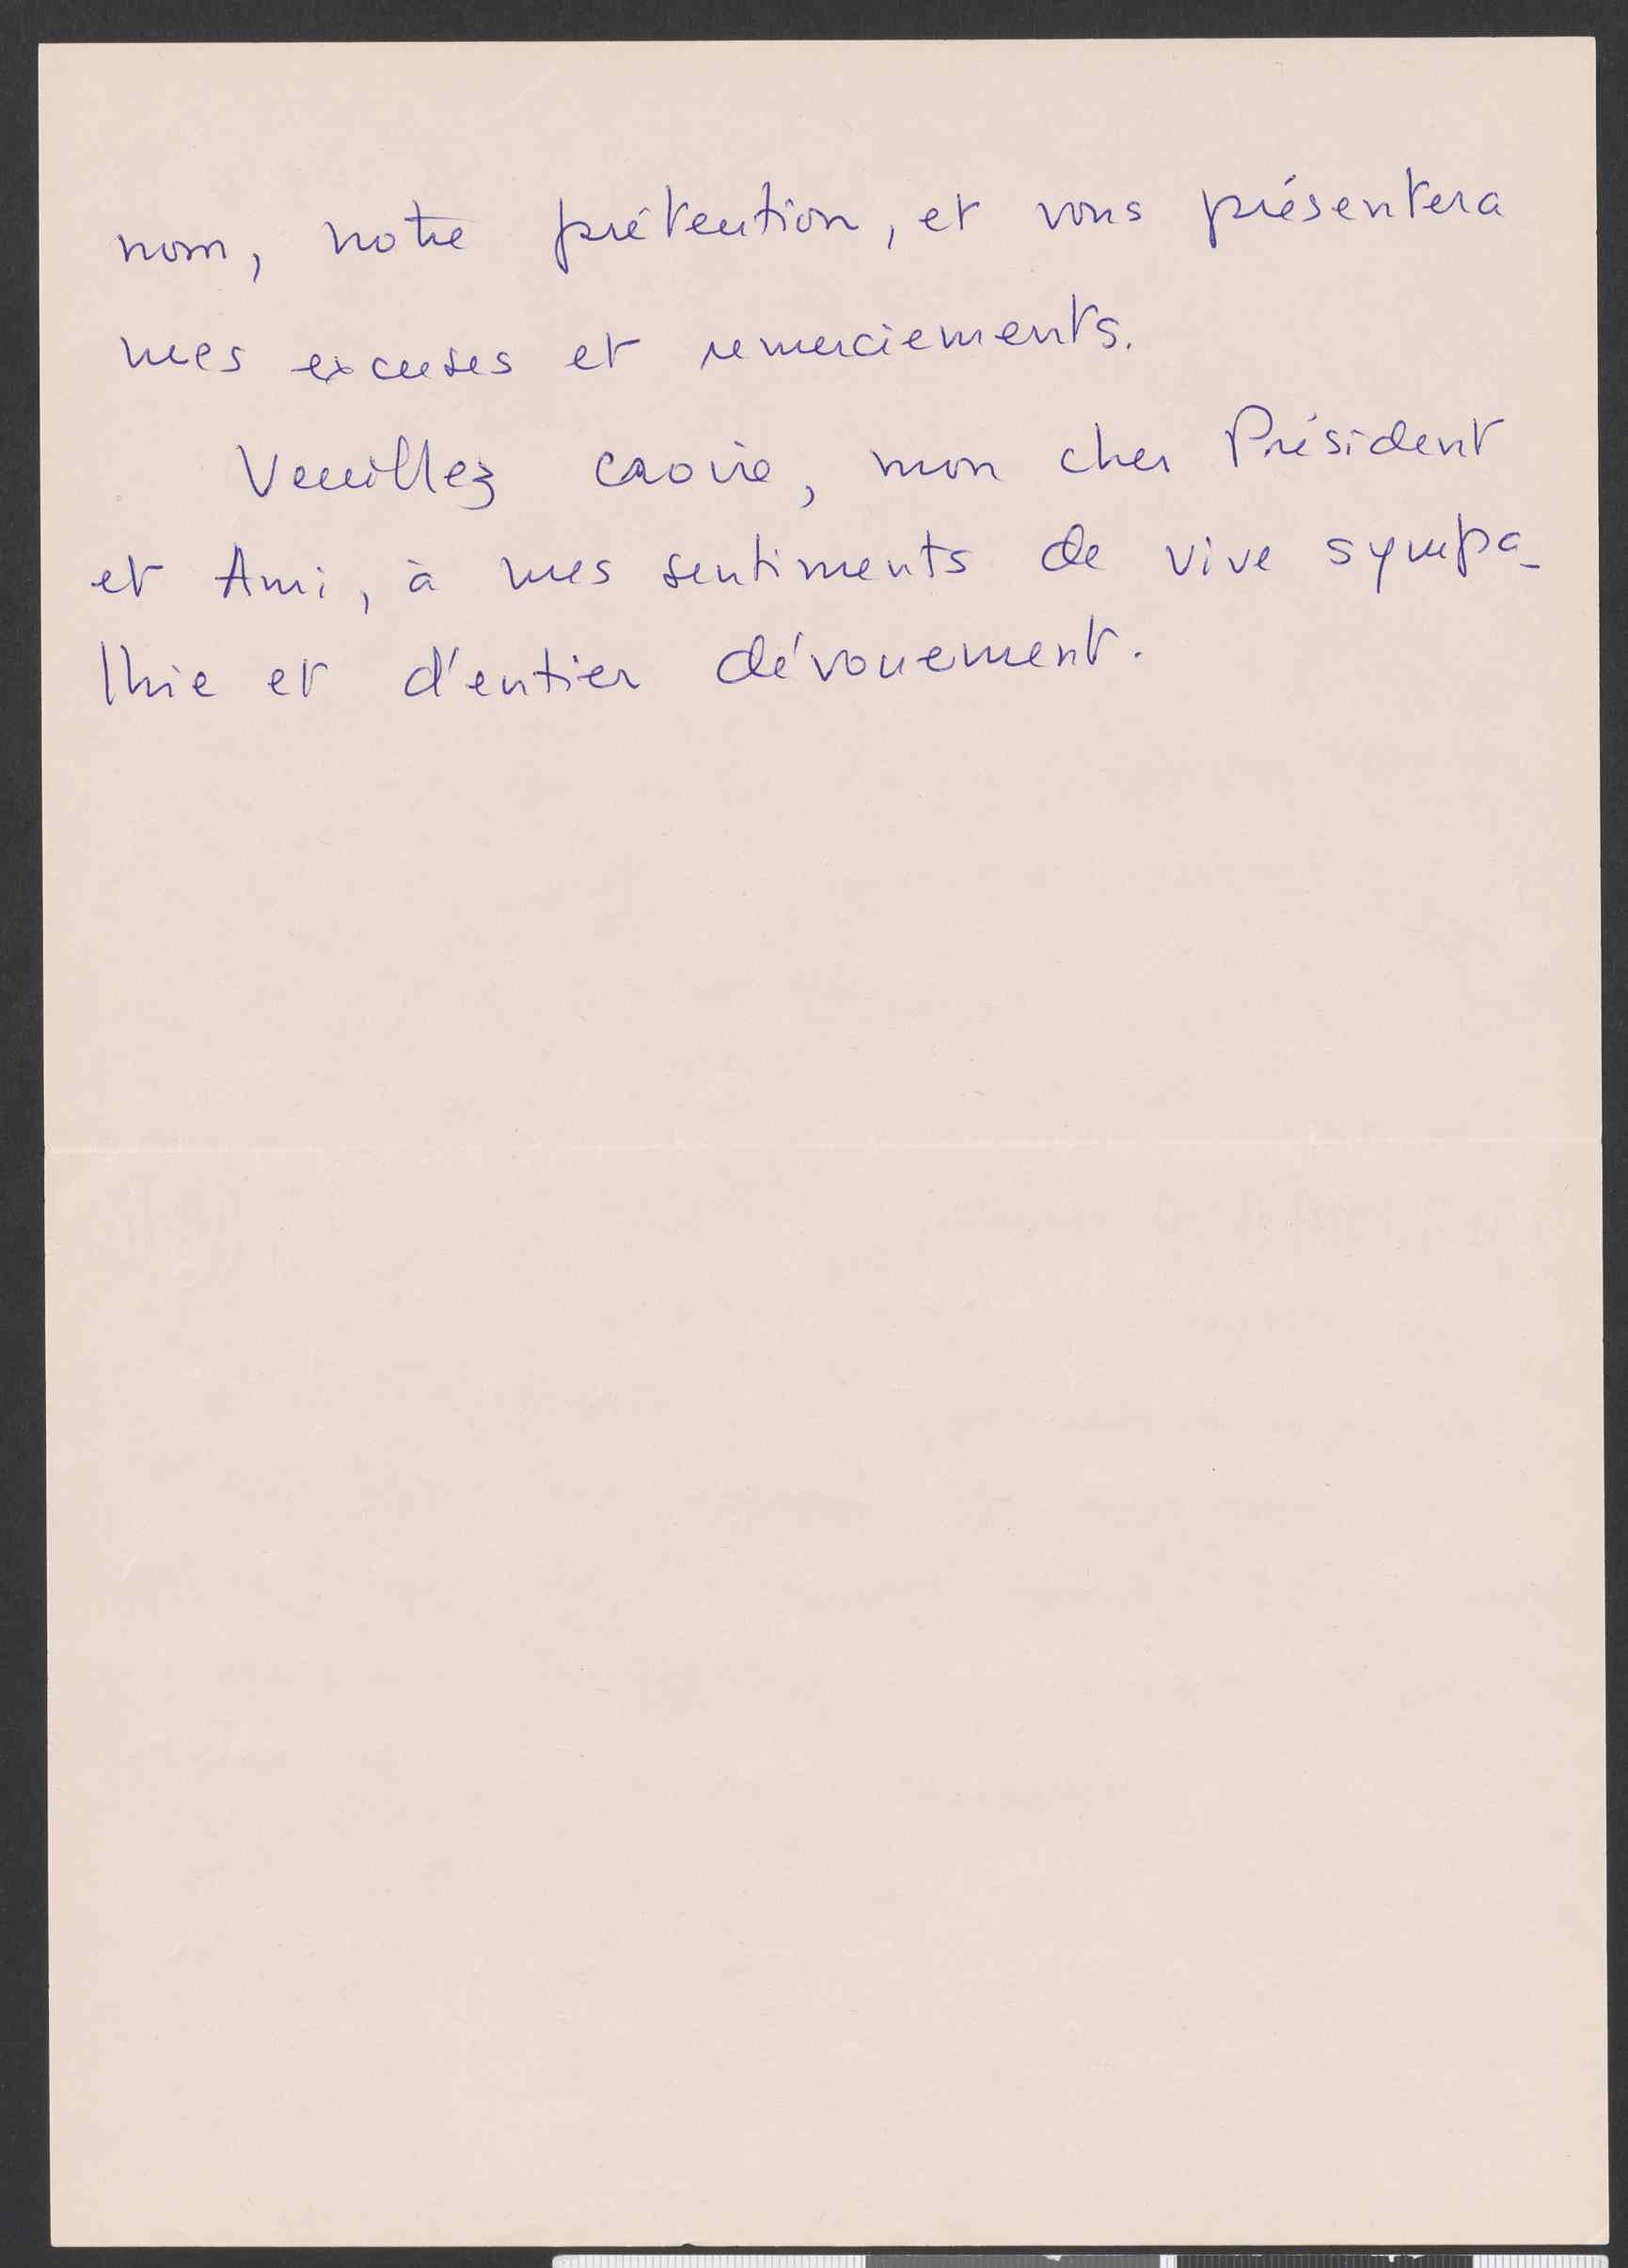 nom, notre prétention, et vous présentera
mes excuses et remerciements.
Veuillez croire, mon cher Président
et Ami, à mes sentiments de vive sympa-
thie et d'entier dévouement.